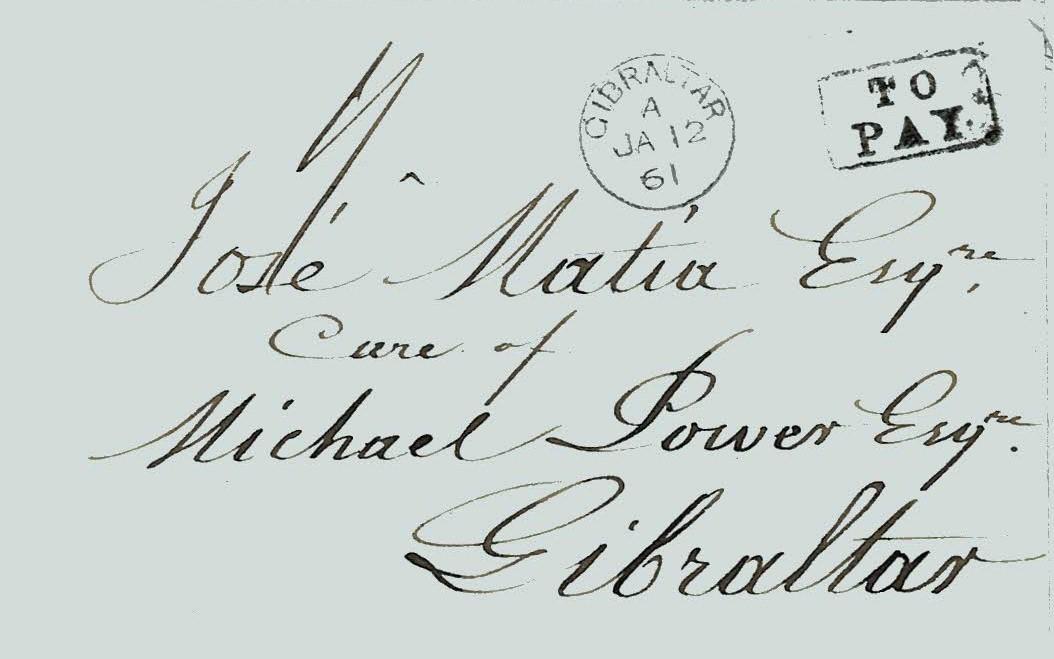 GIBRALTAR
A
JA 12
61
TO
PAY.
José Matía Esqre.
Care of
Michael Power Esqre.
Gibraltar